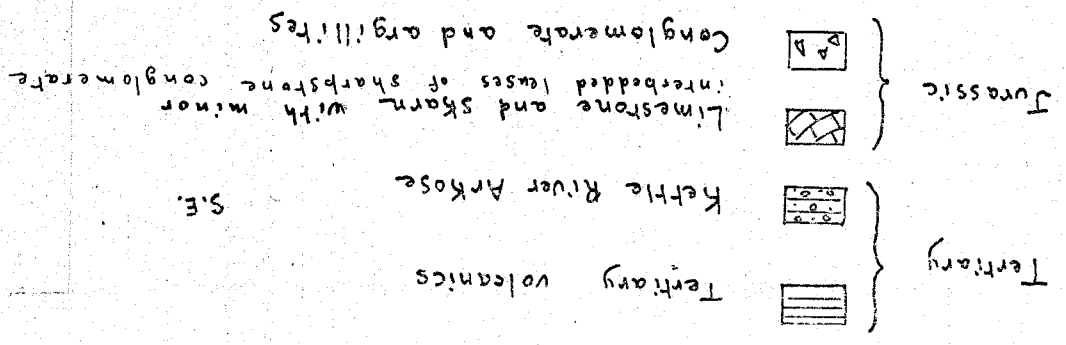 Tertiary
Tertiary volcanics
Kettle River Arkose
S.E.
Jurassic
Limestone and skarn with minor
interbedded lenses of sharpstone conglomerate
Conglomerate and argillites